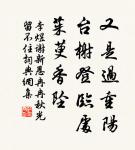 又是過重陽
台榭登臨處
茱萸香墜
李煜謝新恩冉冉秋光
留不住詞典網集